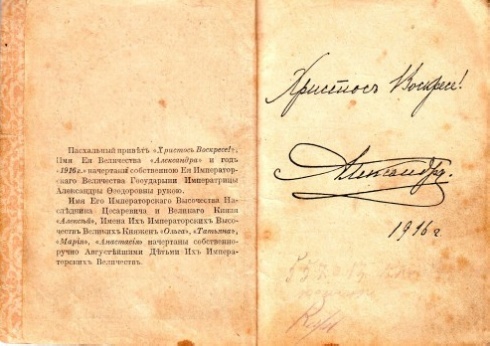 Пасхальный привѣтъ «Христосъ Воскресе!»;
Имя Ея Величества «Александра» и годъ
«1916г.» начертаны собственною Ея Император-
скаго Величества Государыни Императрицы
Александры Ѳеодоровны рукою.
Имя Его Императорскаго Высочества На-
слѣдника Цесаревича и Великаго Князя
«Алексѣй», Имена Ихъ Императорскихъ Высо-
чествъ Великихъ Княженъ «Ольга», «Татьяна»,
«Марія», «Анастасія» начертаны собственно-
ручно Августѣйшими Дѣтьми Ихъ Импера-
торскихъ Величествъ.
Христосъ Воскресе!
Александра.
1916 г